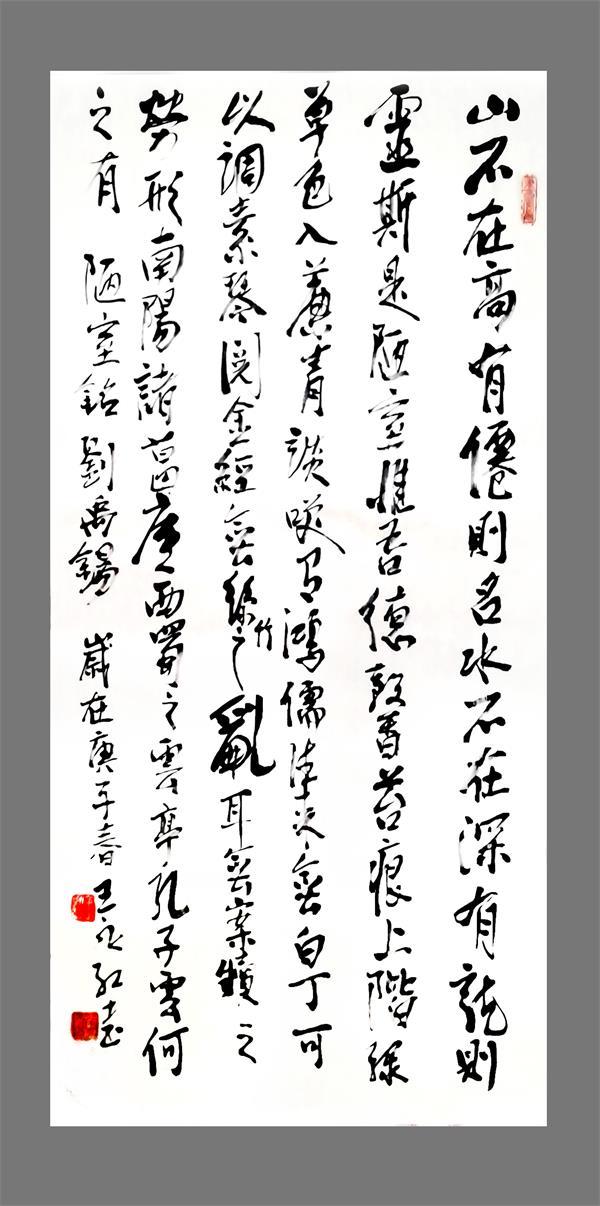 山不在高有僊則名水不在深有龍則
靈斯是陋室惟吾德馨苔痕上階綠
草色入簾青談咲有鴻儒往來無白丁可
以調素琴閱金經無絲竹之亂耳無案牘之
勞形南陽諸葛廬西蜀之雲亭孔子雲何
之有 陋室銘 劉禹錫 歲在庚子春 王永红書